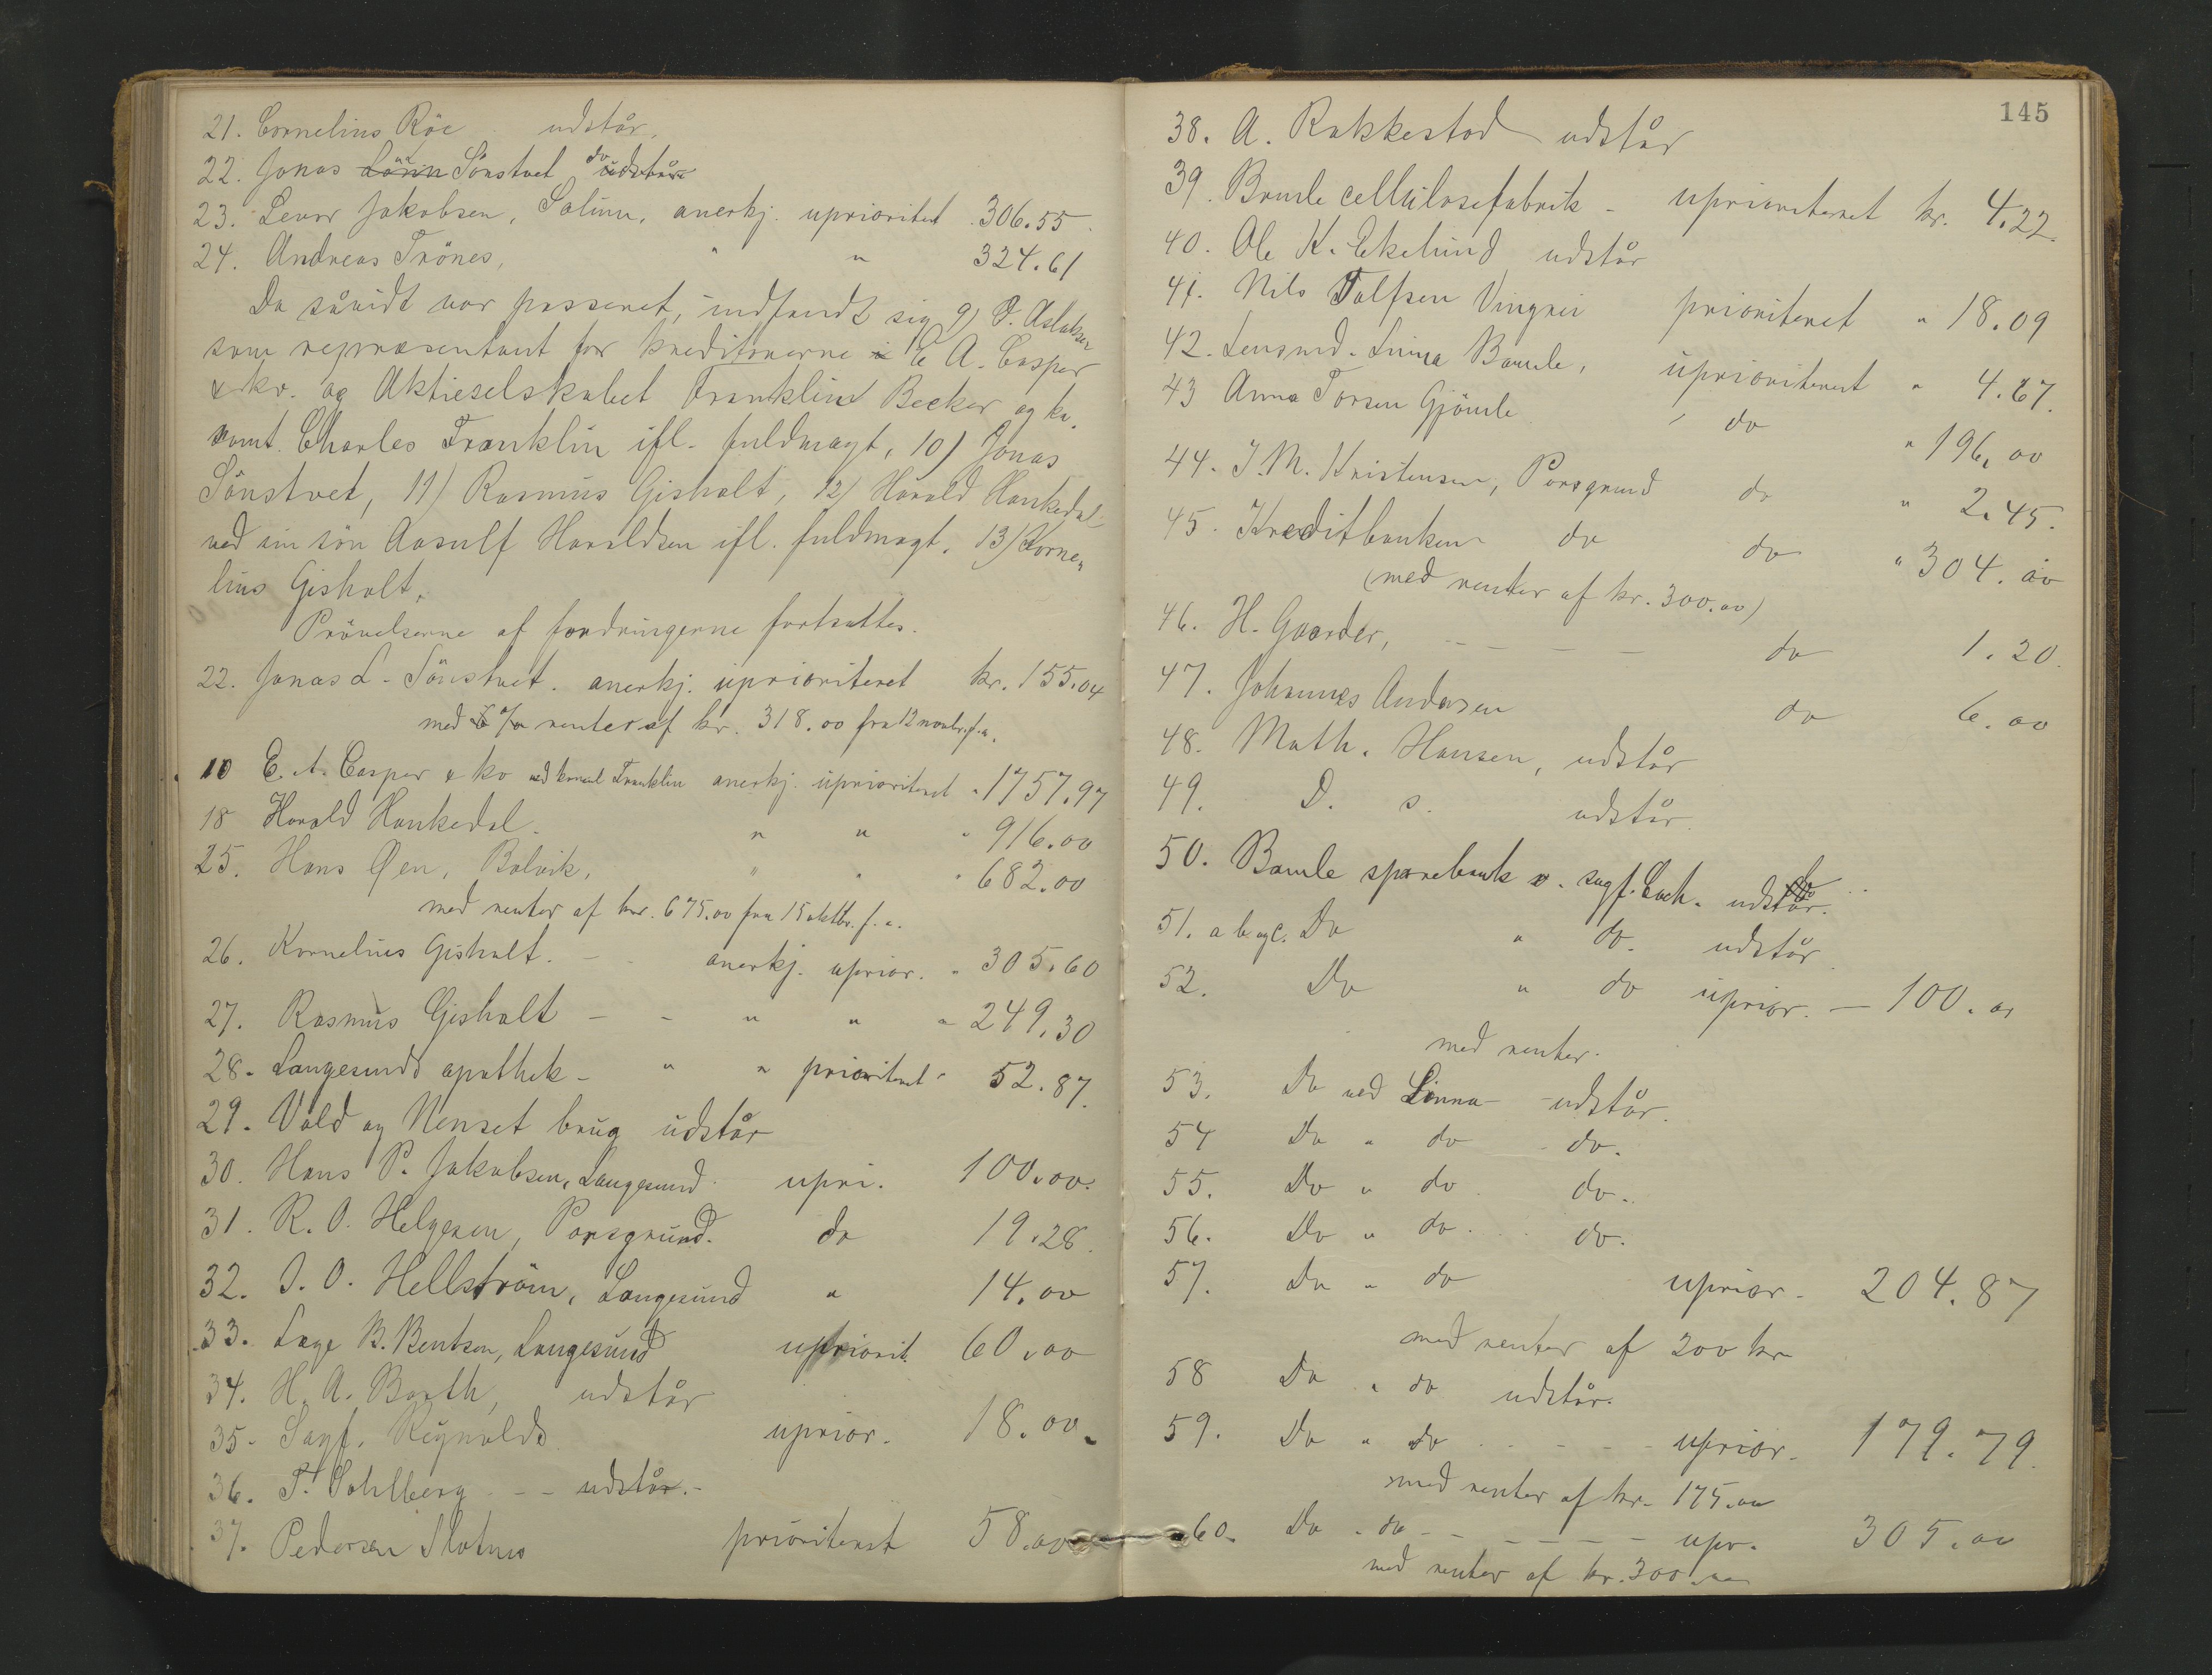 21. Cornelius Röe udstår.
22. Jonas Sönstvet do
23. Levor Jakobsen, Solum, anerkj. uprioritet 306.55
24. Andreas Trönes, " " 324.61
Da såvidt var passeret, indfandt sig 9) O. Aslaksen
som repræsentant for kreditorerne E. A. Casper
& ko. og Aktieselskabet Franklin Becker og ko.
samt Charles Franklin ifl. fuldmagt, 10) Jonas
Sönstvet, 11) Rasmus Gisholt, 12) Harald Hankedal
ved sin sön Aasulf Haraldsen ifl. fuldmagt, 13) Korne„
lius Gisholt.
Prövelserne af fordringerne fortsattes.
22. Jonas L. Sönstvet. anerkj. uprioriteret kr. 155.04
med 6 % renter af kr. 318.00 fra 12 novbr. f. a.
10 E. A. Casper & ko ved konsul Franklin anerkj. uprioriteret " 1757.97
18 Harald Hankedal. " " " 916.00
25. Hans Øen, Bolvik, " " " 682.00
med renter af kr. 675.00 fra 15 oktbr. f. a.
26. Kornelius Gisholt. - - anerkj. uprior. " 305.60
27. Rasmus Gisholt - - " " " 249.30
28. Langesunds apothek - " " prioriteret " 52.87.
29. Vold og Nenset brug udstår
30. Hans P. Jakobsen, Langesund upri. 100.00.
31. R. O. Helgesen, Porsgrund. do 19.28.
32. J. O. Hellström, Langesund " 14.00
33. Lage B. Bentsen, Langesund upriorit. 60.00
34. H. A. Barth, udstår
35. Sagf. Reynolds uprior. 18.00.
36. T. Sohlberg - - udstår.-
37. Pedersen Slotnes prioriteret 58.00
145
38. A. Rakkestad udstår
39. Bamle cellulosefabrik - uprioriteret kr. 4.22.
40. Ole K. Ekelund udstår
41. Nils Tolfsen Vingrei prioriteret " 18.09
42. Lensmd. Linna Bamle, uprioriteret " 4.67.
43 Anna Torsen Gjömle " do " 196.00
44. J. M. Kristensen, Porsgrund do " 2.45.
45. Kreditbanken do do " 304.00
(med renter af kr. 300.00)
46. H. Gaarder, - - - - do 1.20.
47. Johannes Andersen do 6.00
48. Math. Hansen, udstår
49. D. s. udstår.
50. Bamle sparebank v. sagf. Coch. udstår.
51. a b og c. Do " do. udstår.
52. Do " do uprior. - 100.00
med renter.
53. Do ved Linna - udstår.
54 Do " do do.
55. Do " do do.
56. Do " do. do.
57. Do " do uprior. 204.87
med renter af 200 kr
58 Do " do udstår.
59. Do " do - - - uprior. 179.79.
med renter af kr. 175.00
60. Do " do - - - - - upr. 305.00
med renter af kr. 300.00